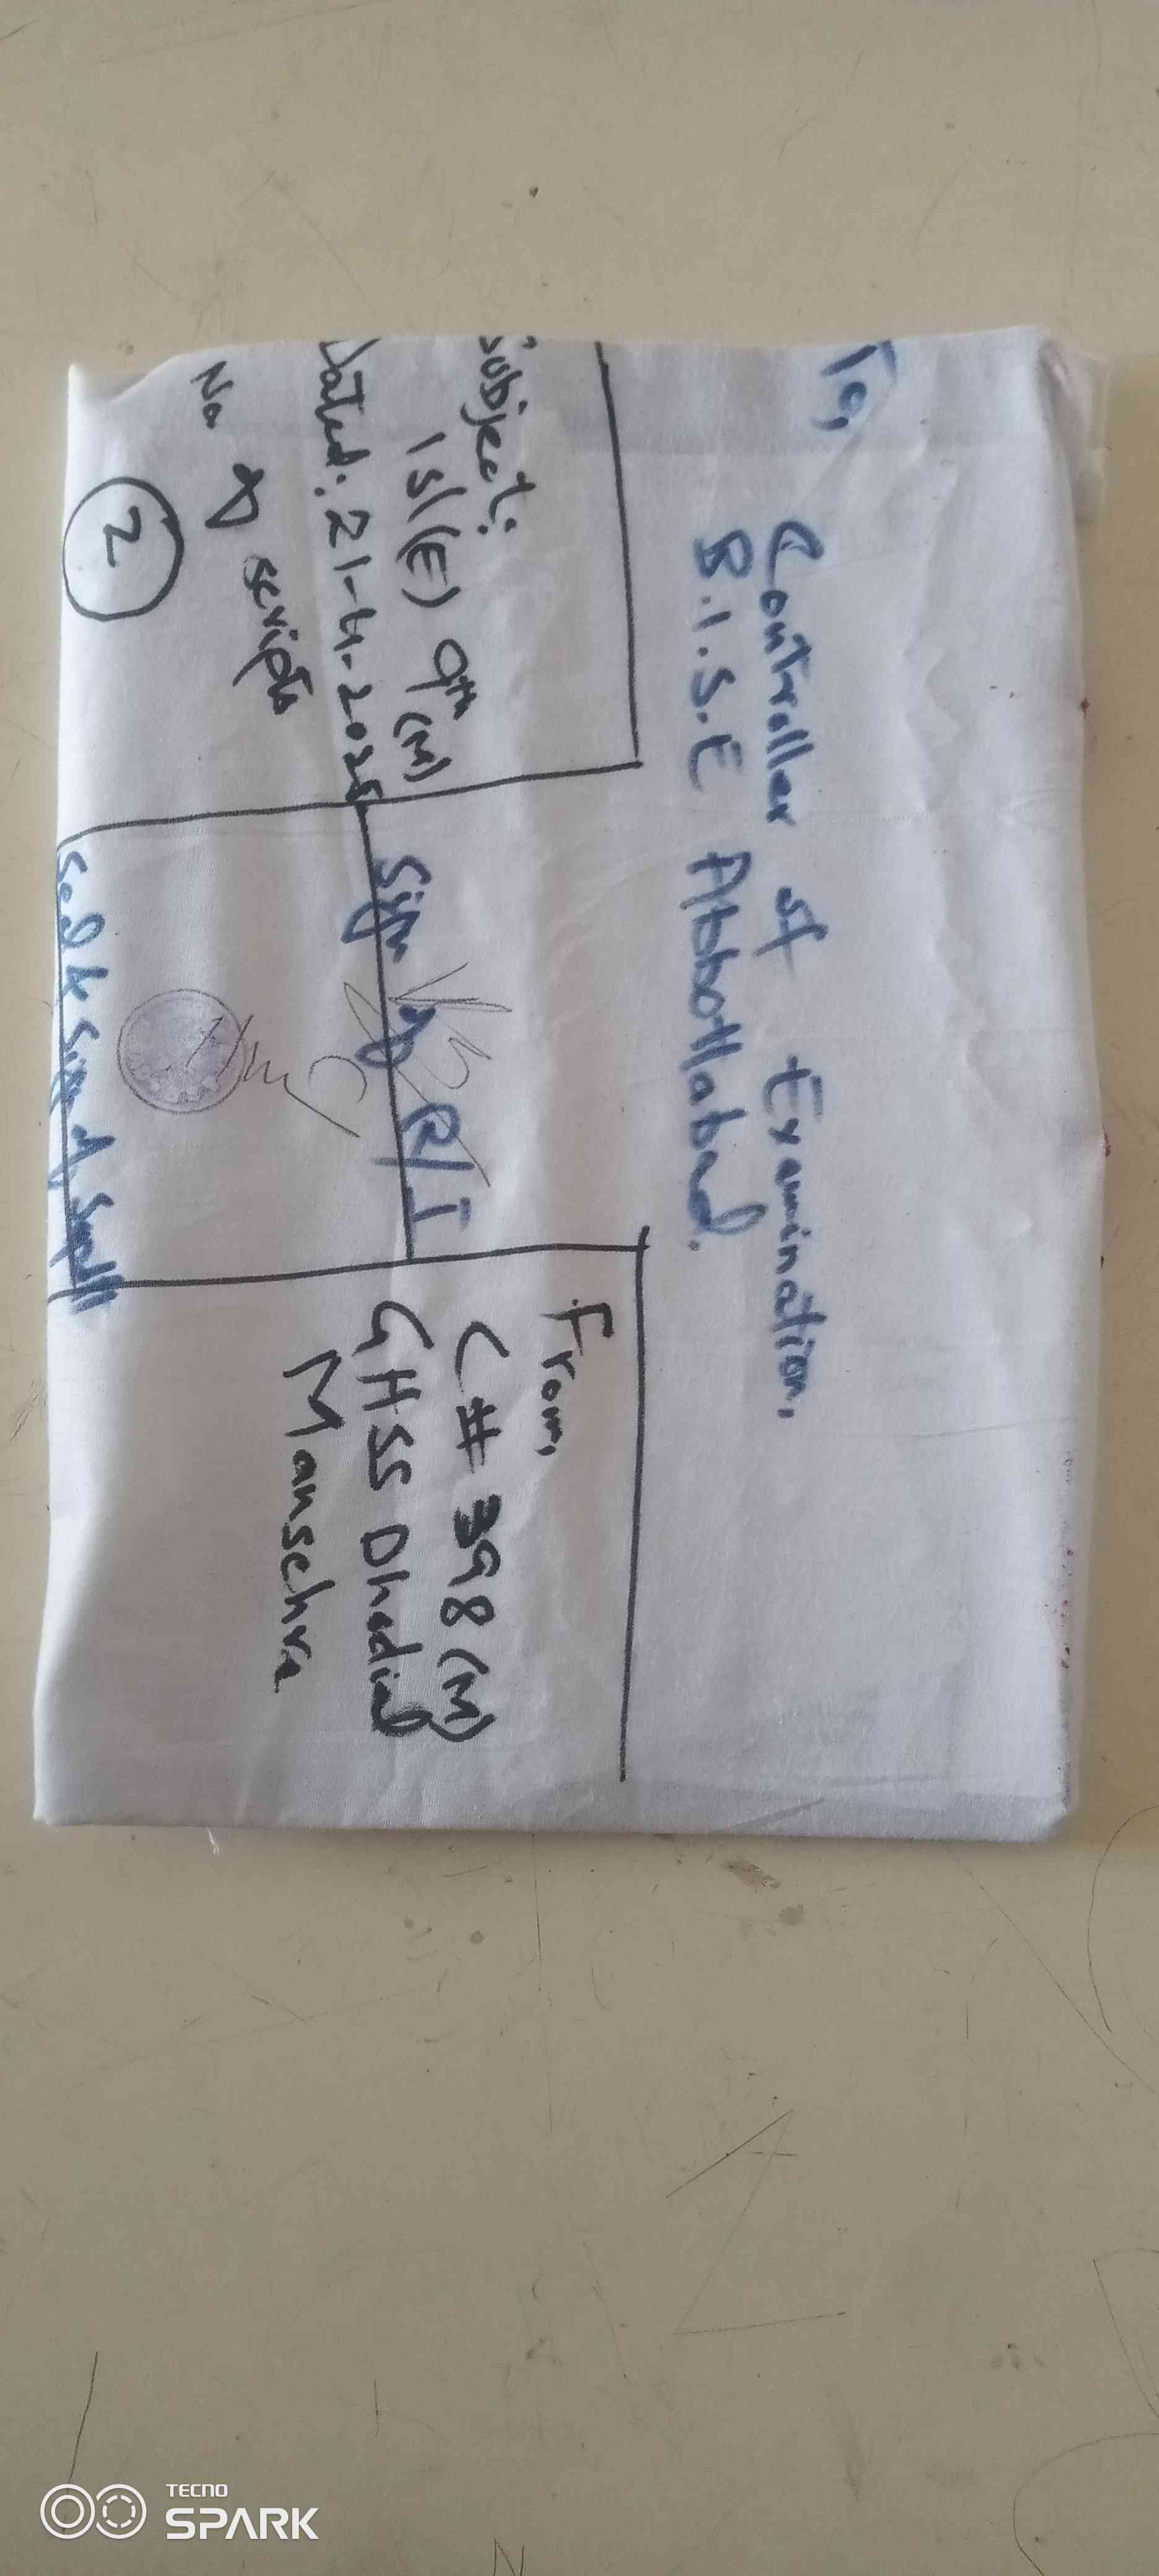 To,
Controller of Examination,
B.I.S.E Abbottabad.
Subject:
Isl(E) 9th (M)
Dated: 21-4-2025
No of scripts
2
Sign of R/I
Seal & Sign of Supdt
From,
C# 398 (M)
GHSS Dhodial
Mansehra
TECNO
SPARK